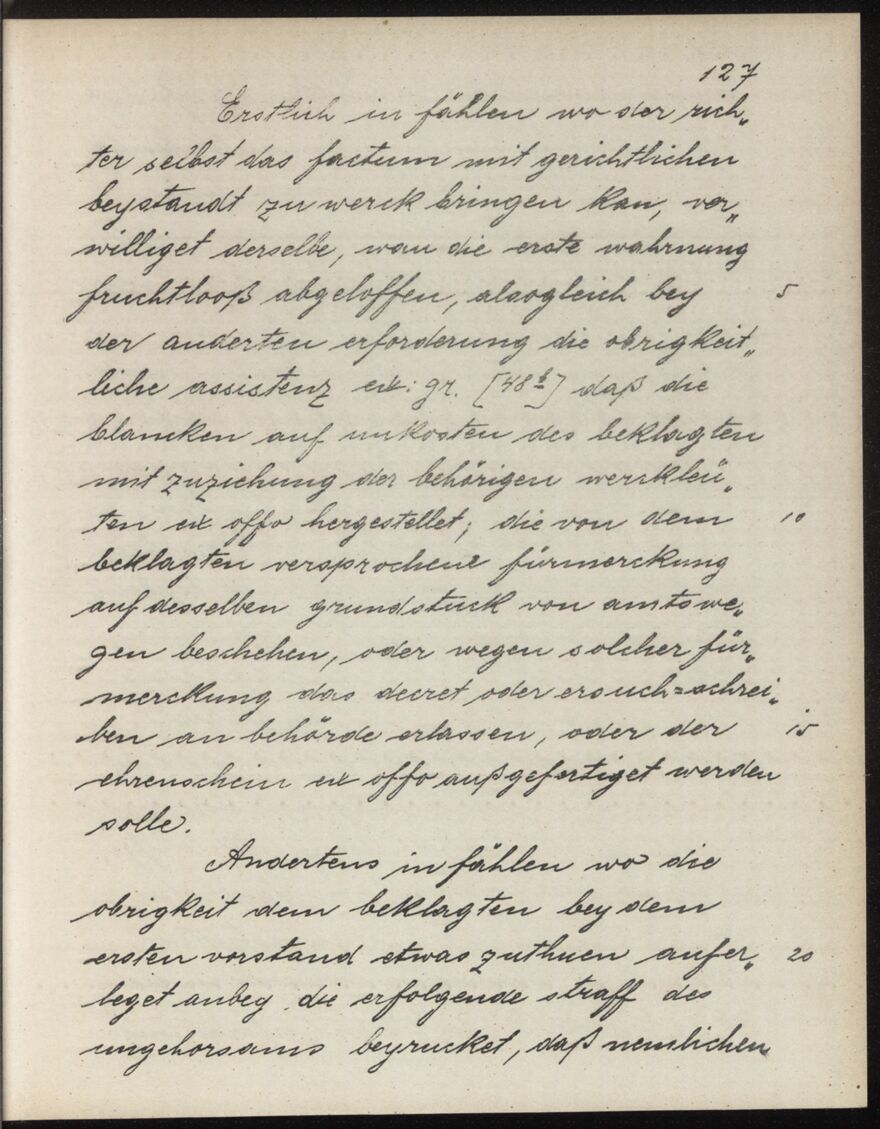 127
Erstlich in fählen wo der rich„
ter selbst das factum mit gerichtlichen
beystandt zu werck bringen kan, ver„
williget derselbe, wan die erste wahrnung
fruchtlooß abgeloffen, alsogleich bey 5
der anderten erforderung die obrigkeit„
liche assistenz ex: gr. [48b] daß die
blancken auf unkosten des beklagten
mit zuziehung der behörigen werckleü„
ten ex offo hergestellet; die von dem 10
beklagten versprochene fürmerckung
auf desselben grundstuck von amtswe„
gen beschehen, oder wegen solcher für„
merckung das decret oder ersuch=schrei„
ben an behörde erlassen, oder der 15
ehrenschein ex offo außgefertiget werden
solle.
Andertens in fählen wo die
obrigkeit dem beklagten bey dem
ersten vorstand etwas zuthuen aufer„ 20
leget anbey die erfolgende straff des
ungehorsams beyrucket, daß nemlichen